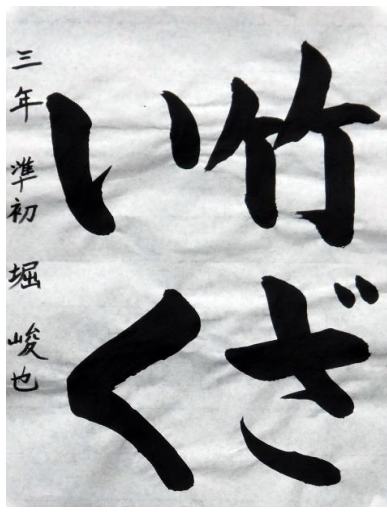 竹ざ
いく
三年 準初 堀 峻也